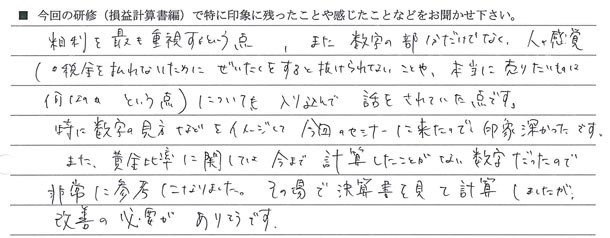 ■ 今回の研修（損益計算書編）で特に印象に残ったことや感じたことなどをお聞かせ下さい。
粗利を最も重視するという点、また数字の部分だけでなく、人の感覚
（税金を払わないために ぜいたくをすると抜けられないことや、本当に売りたいものは
何なのか という点）についても 入り込んで 話をされていた点です。
特に数字の見方などをイメージして今回のセミナーに来たので印象深かったです。
また、黄金比率に関しては今まで計算したことがない数字だったので
非常に参考になりました。その場で決算書を見て計算しましたが、
改善の必要がありそうです。